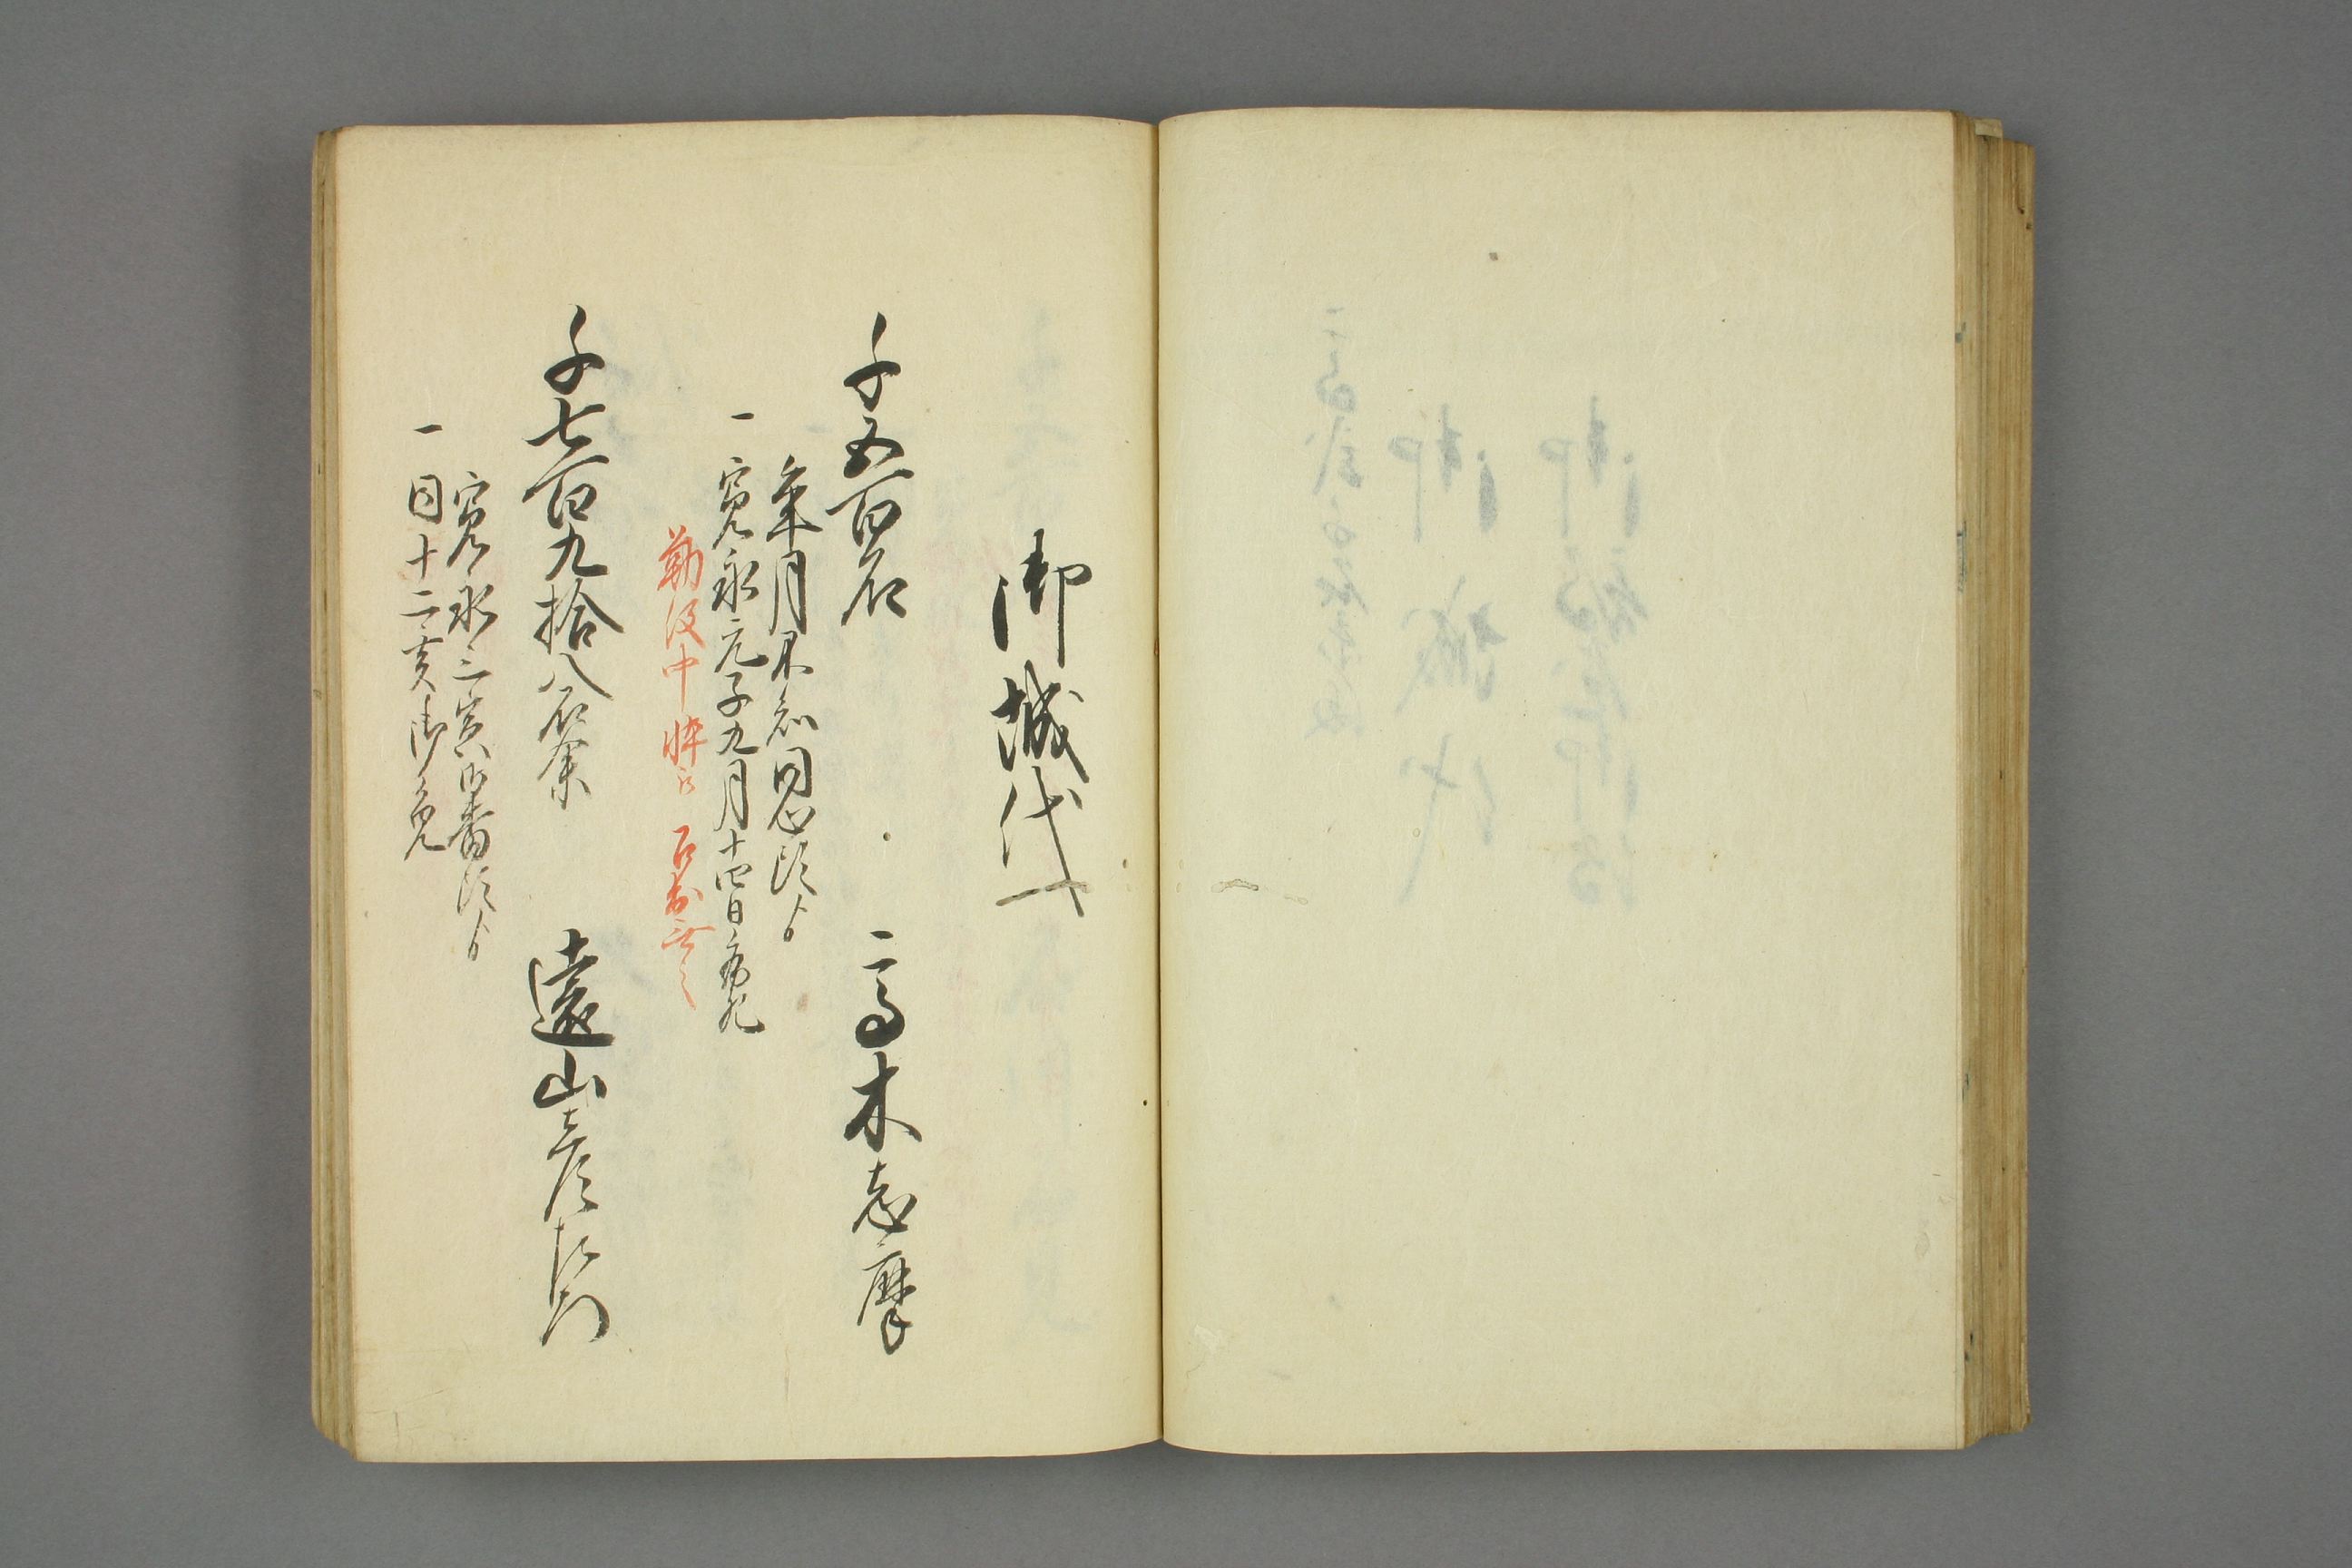 御城代
千五百石　高木志摩
年月不知同心頭ゟ
一寛永元子九月十四日病死
勤役中悴
千七百九拾八石余　遠山彦左衛門
寛永三寅御番頭ゟ
一同十二亥御免